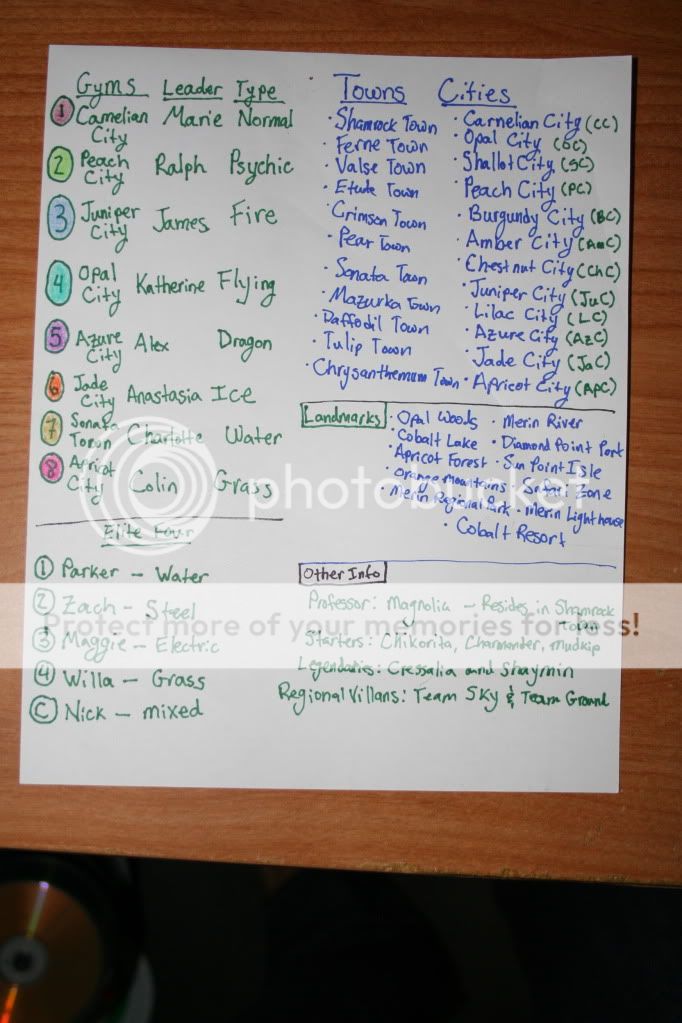 Gyms Leader Type
1 Carnelian City Marie Normal
2 Peach City Ralph Psychic
3 Juniper City James Fire
4 Opal City Katherine Flying
5 Azure City Alex Dragon
6 Jade City Anastasia Ice
7 Sonata Town Charlotte Water
8 Apricot City Colin Grass
Elite Four
1 Parker - Water
2 Zach - Steel
3 Maggie - Electric
4 Willa - Grass
C Nick - mixed
Towns
· Shamrock Town
· Ferne Town
· Valse Town
· Etude Town
· Crimson Town
· Pear Town
· Sonata Town
· Mazurka Town
· Daffodil Town
· Tulip Town
· Chrysanthemum Town
Cities
· Carnelian City (CC)
· Opal City (OC)
· Shallot City (SC)
· Peach City (PC)
· Burgundy City (BC)
· Amber City (AmC)
· Chestnut City (ChC)
· Juniper City (JuC)
· Lilac City (LC)
· Azure City (AzC)
· Jade City (JaC)
· Apricot City (ApC)
Landmarks
· Opal Woods
· Cobalt Lake
· Apricot Forest
· Orange Mountains
· Merin Regional Park
· Merin River
· Diamond Point Port
· Sun Point Isle
· Safari Zone
· Merin Lighthouse
· Cobalt Resort
Other Info
Professor: Magnolia - Resides in Shamrock
Town
Starters: Chikorita, Charmander, Mudkip
Legendaries: Cressalia and Shaymin
Regional Villans: Team Sky & Team Ground
photobucket
Protect more of your memories for less!